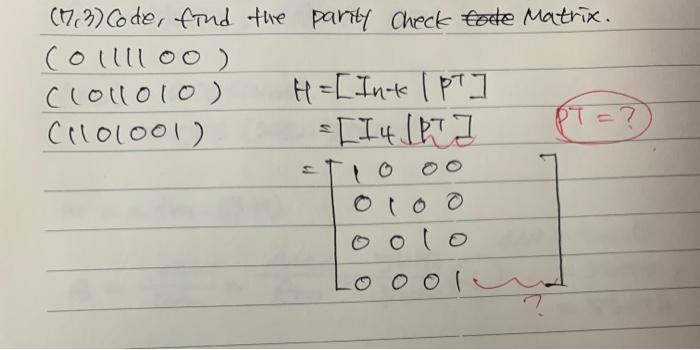 (7,3) Code, find the parity check Matrix.
(0111100)
(1011010) H = [In-k | PT]
(1101001) = [I4 | PT] PT = ?
= [1 0 0 0
0 1 0 0
0 0 1 0
0 0 0 1 ]
?